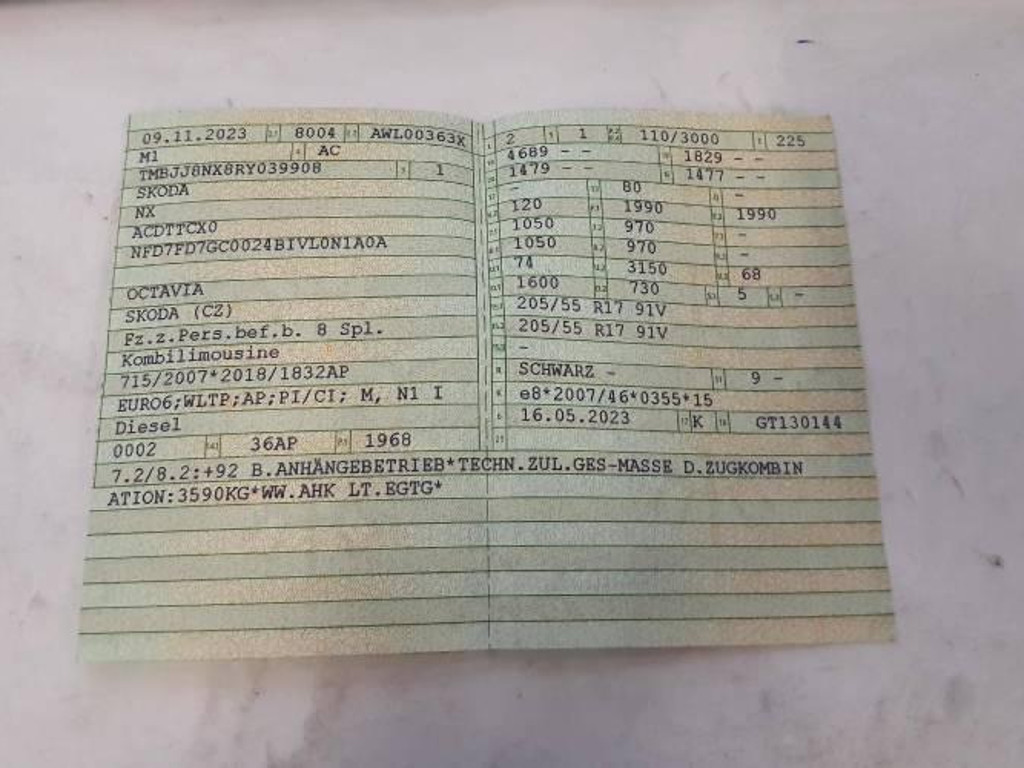 09.11.2023 8004 AWL00363X
M1 AC
TMBJJ8NX8RY039908 1
SKODA
NX
ACDTTCX0
NFD7FD7GC0024BIVL0N1A0A
OCTAVIA
SKODA (CZ)
Fz.z.Pers.bef.b. 8 Spl.
Kombilimousine
715/2007*2018/1832AP
EURO6;WLTP;AP;PI/CI; M, N1 I
Diesel
0002 36AP 1968
2 1 110/3000 225
4689 - - 1829 - -
1479 - - 1477 - -
- 80 -
120 1990 1990
1050 970 -
1050 970 -
74 3150 68
1600 730 5 -
205/55 R17 91V
205/55 R17 91V
-
SCHWARZ - 9 -
e8*2007/46*0355*15
16.05.2023 K GT130144
7.2/8.2:+92 B.ANHÄNGEBETRIEB*TECHN.ZUL.GES-MASSE D.ZUGKOMBIN
ATION:3590KG*WW.AHK LT.EGTG*